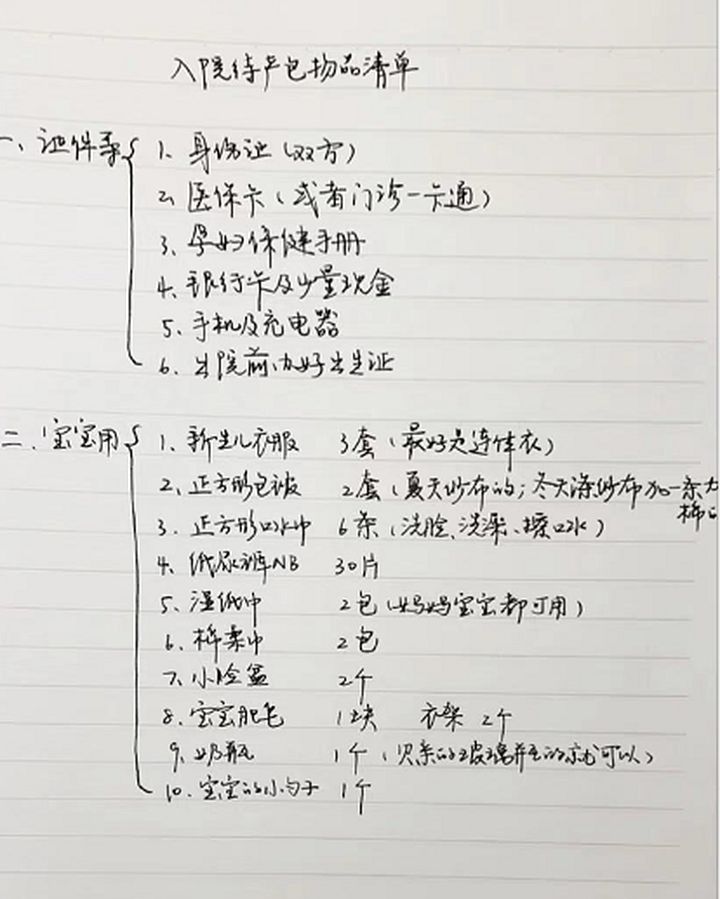 入院待产包物品清单
一、证件类 1、身份证(双方)
2、医保卡(或者门诊一卡通)
3、孕妇保健手册
4、银行卡及少量现金
5、手机及充电器
6、出院前办好出生证
二、宝宝用 1、新生儿衣服 3套(最好是连体衣)
2、正方形包被 2套(夏天纱布的;冬天涤纱布加一条
棉
3、正方形口水巾 6条(洗脸、洗澡、擦口水)
4、纸尿裤NB 30片
5、湿纸巾 2包(妈妈宝宝都可用)
6、棉柔巾 2包
7、小脸盆 2个
8、宝宝肥皂 1块 衣架 2个
9、奶瓶 1个(贝亲的玻璃 的就可以)
10、宝宝的小勺子 1个